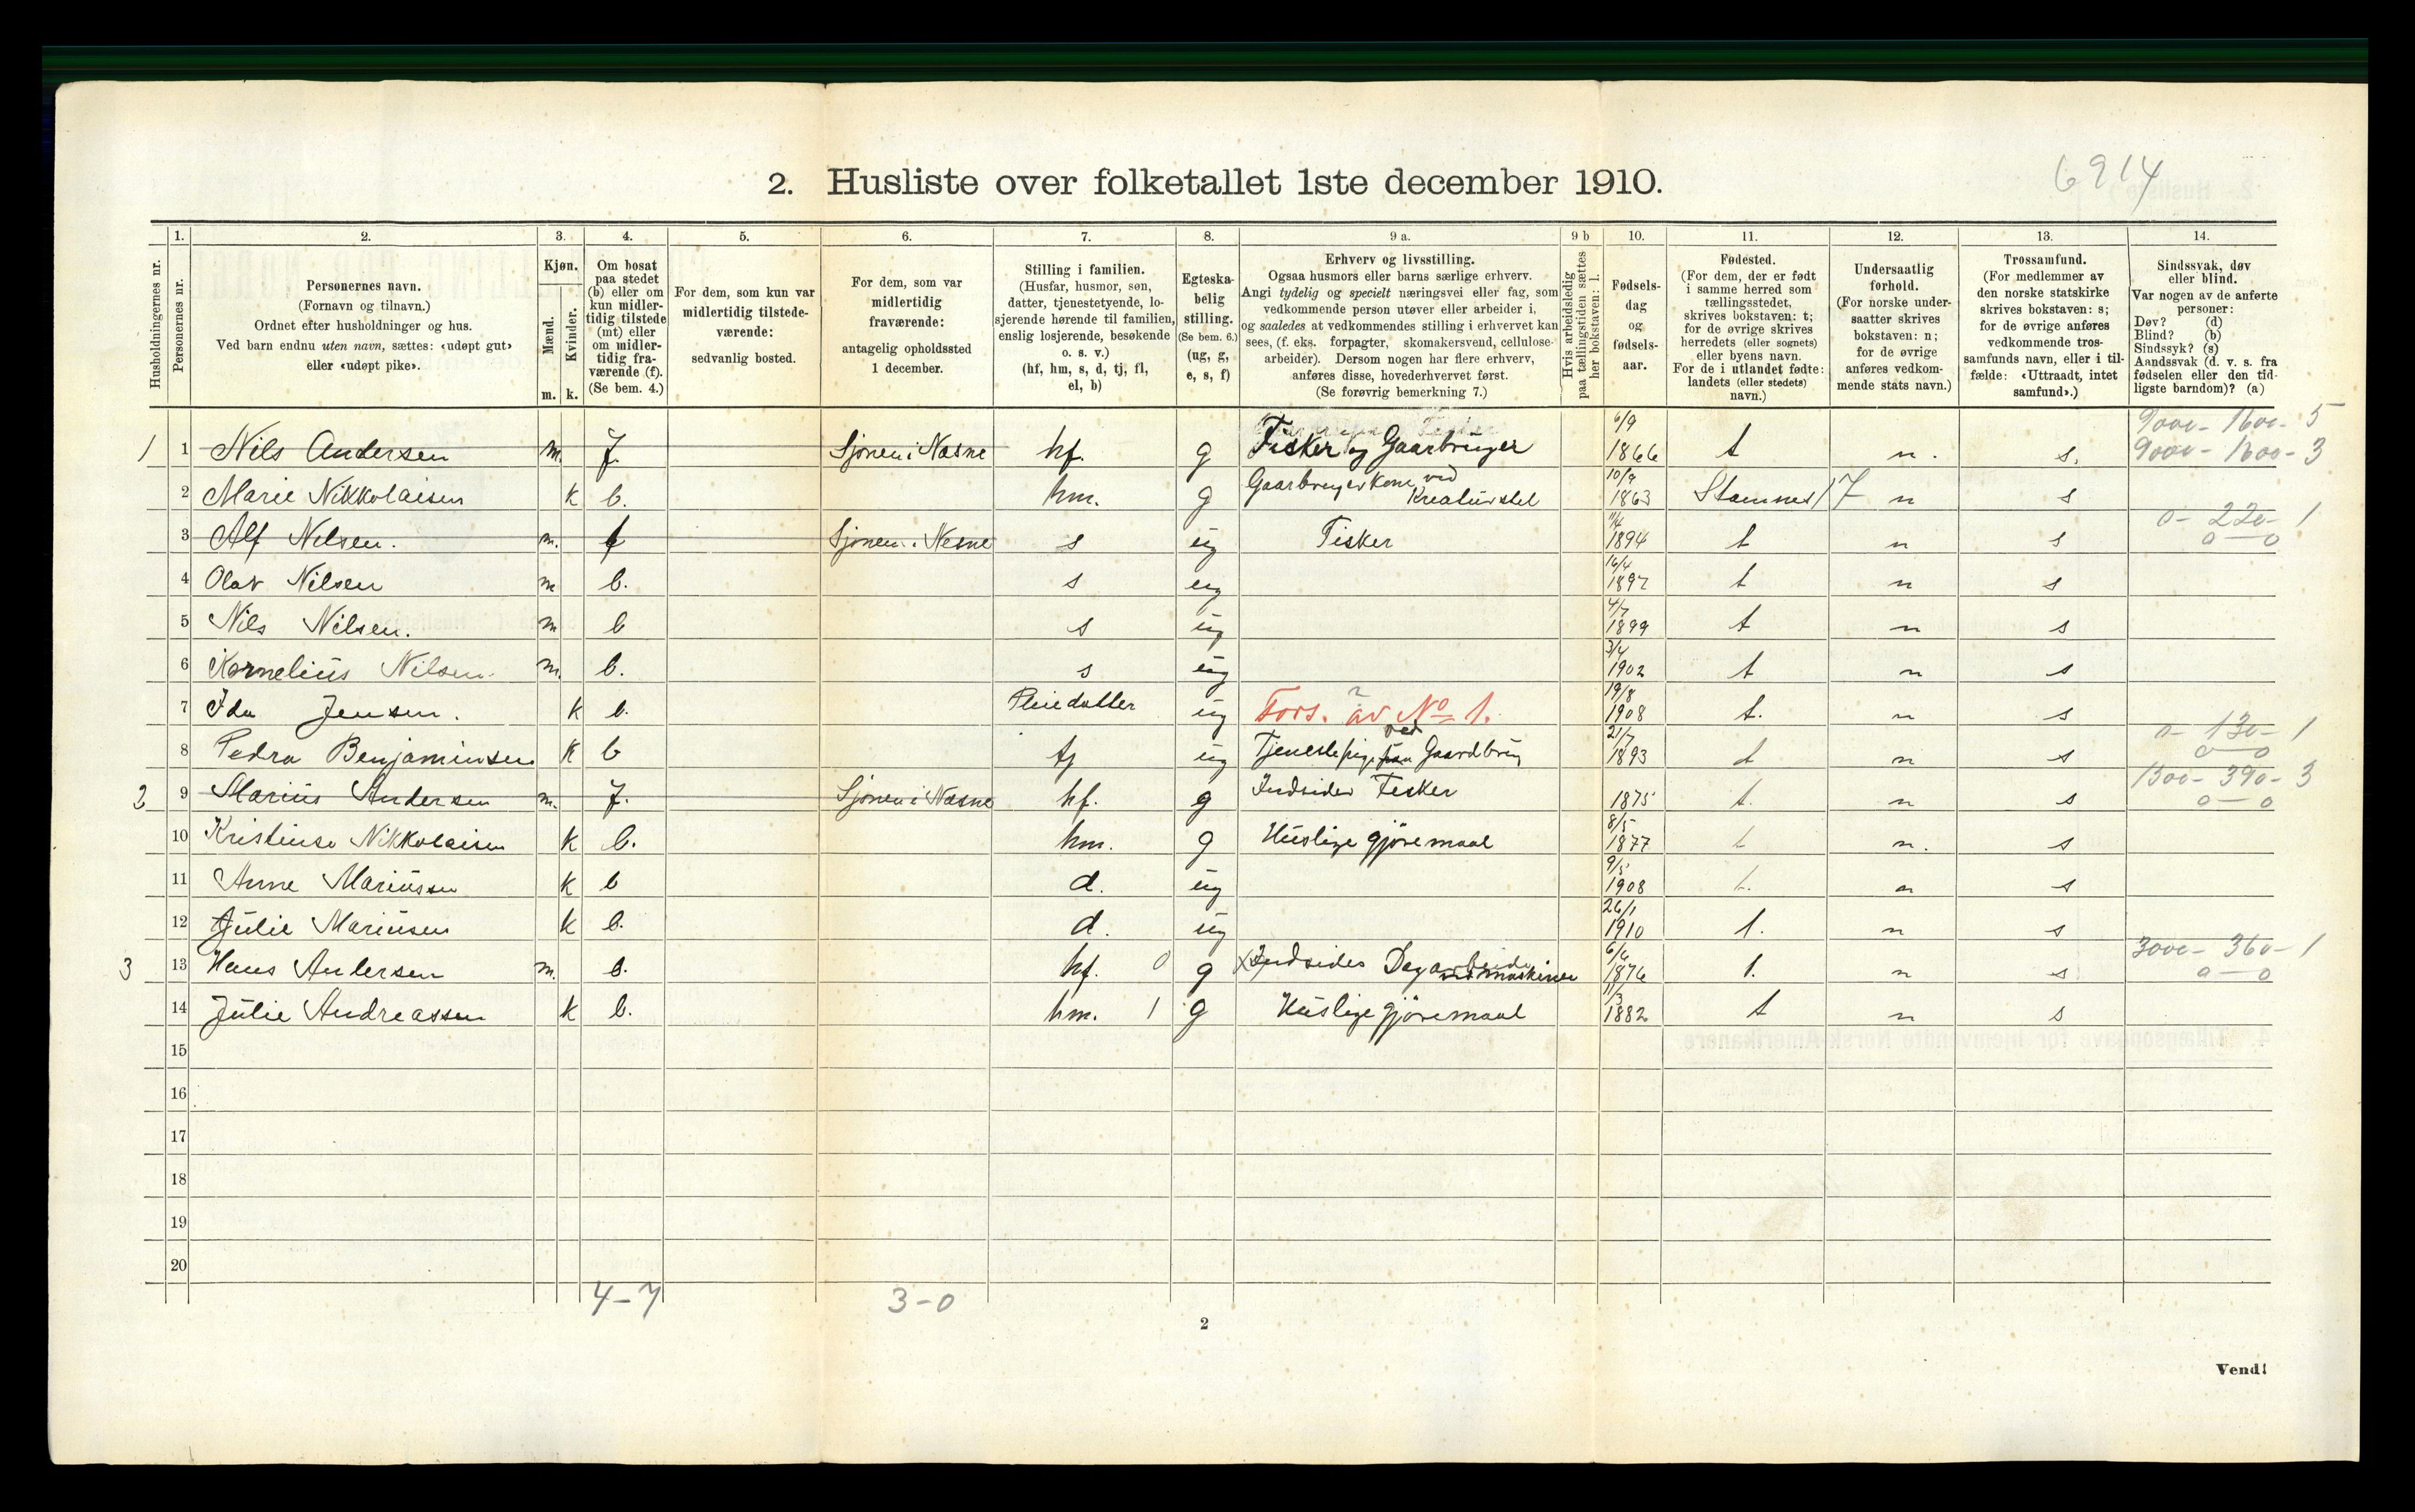 2. Husliste over folketallet 1ste december 1910.
6914
1. 2. 3. 4. 5. 6. 7. 8. 9 a. 9 b 10. 11. 12. 13. 14.
Husholdningernes nr.
Personernes nr.
Personernes navn.
(Fornavn og tilnavn.)
Ordnet efter husholdninger og hus.
Ved barn endnu uten navn, sættes: «udøpt gut»
eller «udøpt pike».
Kjøn.
Mænd.
Kvinder.
m. k.
Om bosat
paa stedet
(b) eller om
kun midler-
tidig tilstede
(mt) eller
om midler-
tidig fra-
værende (f).
(Se bem. 4.)
For dem, som kun var
midlertidig tilstede-
værende:
sedvanlig bosted.
For dem, som var
midlertidig
fraværende:
antagelig opholdssted
1 december.
Stilling i familien.
(Husfar, husmor, søn,
datter, tjenestetyende, lo-
sjerende hørende til familien,
enslig losjerende, besøkende
o. s. v.)
(hf, hm, s, d, tj, fl,
el, b)
Egteska-
belig
stilling.
(Se bem. 6.)
(ug, g,
e, s, f)
Erhverv og livsstilling.
Ogsaa husmors eller barns særlige erhverv.
Angi tydelig og specielt næringsvei eller fag, som
vedkommende person utøver eller arbeider i,
og saaledes at vedkommendes stilling i erhvervet kan
sees, (f. eks. forpagter, skomakersvend, cellulose-
arbeider). Dersom nogen har flere erhverv,
anføres disse, hovederhvervet først.
(Se forøvrig bemerkning 7.)
Hvis arbeidsledig
paa tællingstiden sættes
her bokstaven: l.
Fødsels-
dag
og
fødsels-
aar.
Fødested.
(For dem, der er født
i samme herred som
tællingsstedet,
skrives bokstaven: t;
for de øvrige skrives
herredets (eller sognets)
eller byens navn.
For de i utlandet fødte:
landets (eller stedets)
navn.)
Undersaatlig
forhold.
(For norske under-
saatter skrives
bokstaven: n;
for de øvrige
anføres vedkom-
mende stats navn.)
Trossamfund.
(For medlemmer av
den norske statskirke
skrives bokstaven: s;
for de øvrige anføres
vedkommende tros-
samfunds navn, eller i til-
fælde: «Uttraadt, intet
samfund».)
Sindssvak, døv
eller blind.
Var nogen av de anførte
personer:
Døv? (d)
Blind? (b)
Sindssyk? (s)
Aandssvak (d. v. s. fra
fødselen eller den tid-
ligste barndom)? (a)
9000 - 1600 - 5
1 1 Nils Andersen m. f. Sjonen i Næsne hf. g Fisker og Gaarbruger 6/9 1866 t n. s. 9000 - 1600 - 3
2 Marie Nikkolaisen k b. hm. g Gaarbrugerkone ved Kreaturstel 10/9 1863 Stamnes 17 n s
3 Alf Nilsen. m. f Sjonen i Nesne s ug Fisker 11/4 1894 t n s 0 - 220 - 1 0 — 0
4 Olav Nilsen m b. s ug 16/4 1897 t n s
5 Nils Nilsen. m b s ug 4/7 1899 t n s
6 Kornelius Nilsen. m. b. s ug 3/4 1902 t n s
7 Ida Jensen. k b. Pleiedatter ug Fors. av No 1. ? 19/8 1908 t. n s
8 Pedra Benjaminsen k b tj ug Tjenestepige ved Gaardbrug 21/7 1893 t n s 0 - 130 - 1 0 — 0
2 9 Marius Andersen m. f. Sjonen i Næsne hf. g Indsider Fisker 1875 t. n s 1300 - 390 - 3 0 — 0
10 Kristense Nikkolaisen k b. hm. g Huslige gjøremaal 8/5 1877 t n. s
11 Anne Mariussen k b d. ug 9/5 1908 t. n s
12 Julie Mariusen k b. d. ug 26/1 1910 t. n s
3 13 Hans Andersen m. b. hf. 0 g Indsides Dagarbeide ved maskiner 6/6 1876 t. n s 3000 - 360 - 1 0 — 0
14 Julie Andreassen k b. hm. 1 g Huslige gjøremaal 11/3 1882 t n s
15
16
17
18
19
20
4-7 3-0
2
Vend!